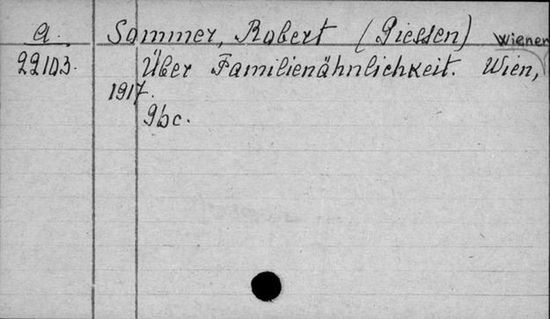 a. Sommer, Robert (Giessen) Wiener
22103. Über Familienähnlichkeit. Wien,
1917.
9bc.